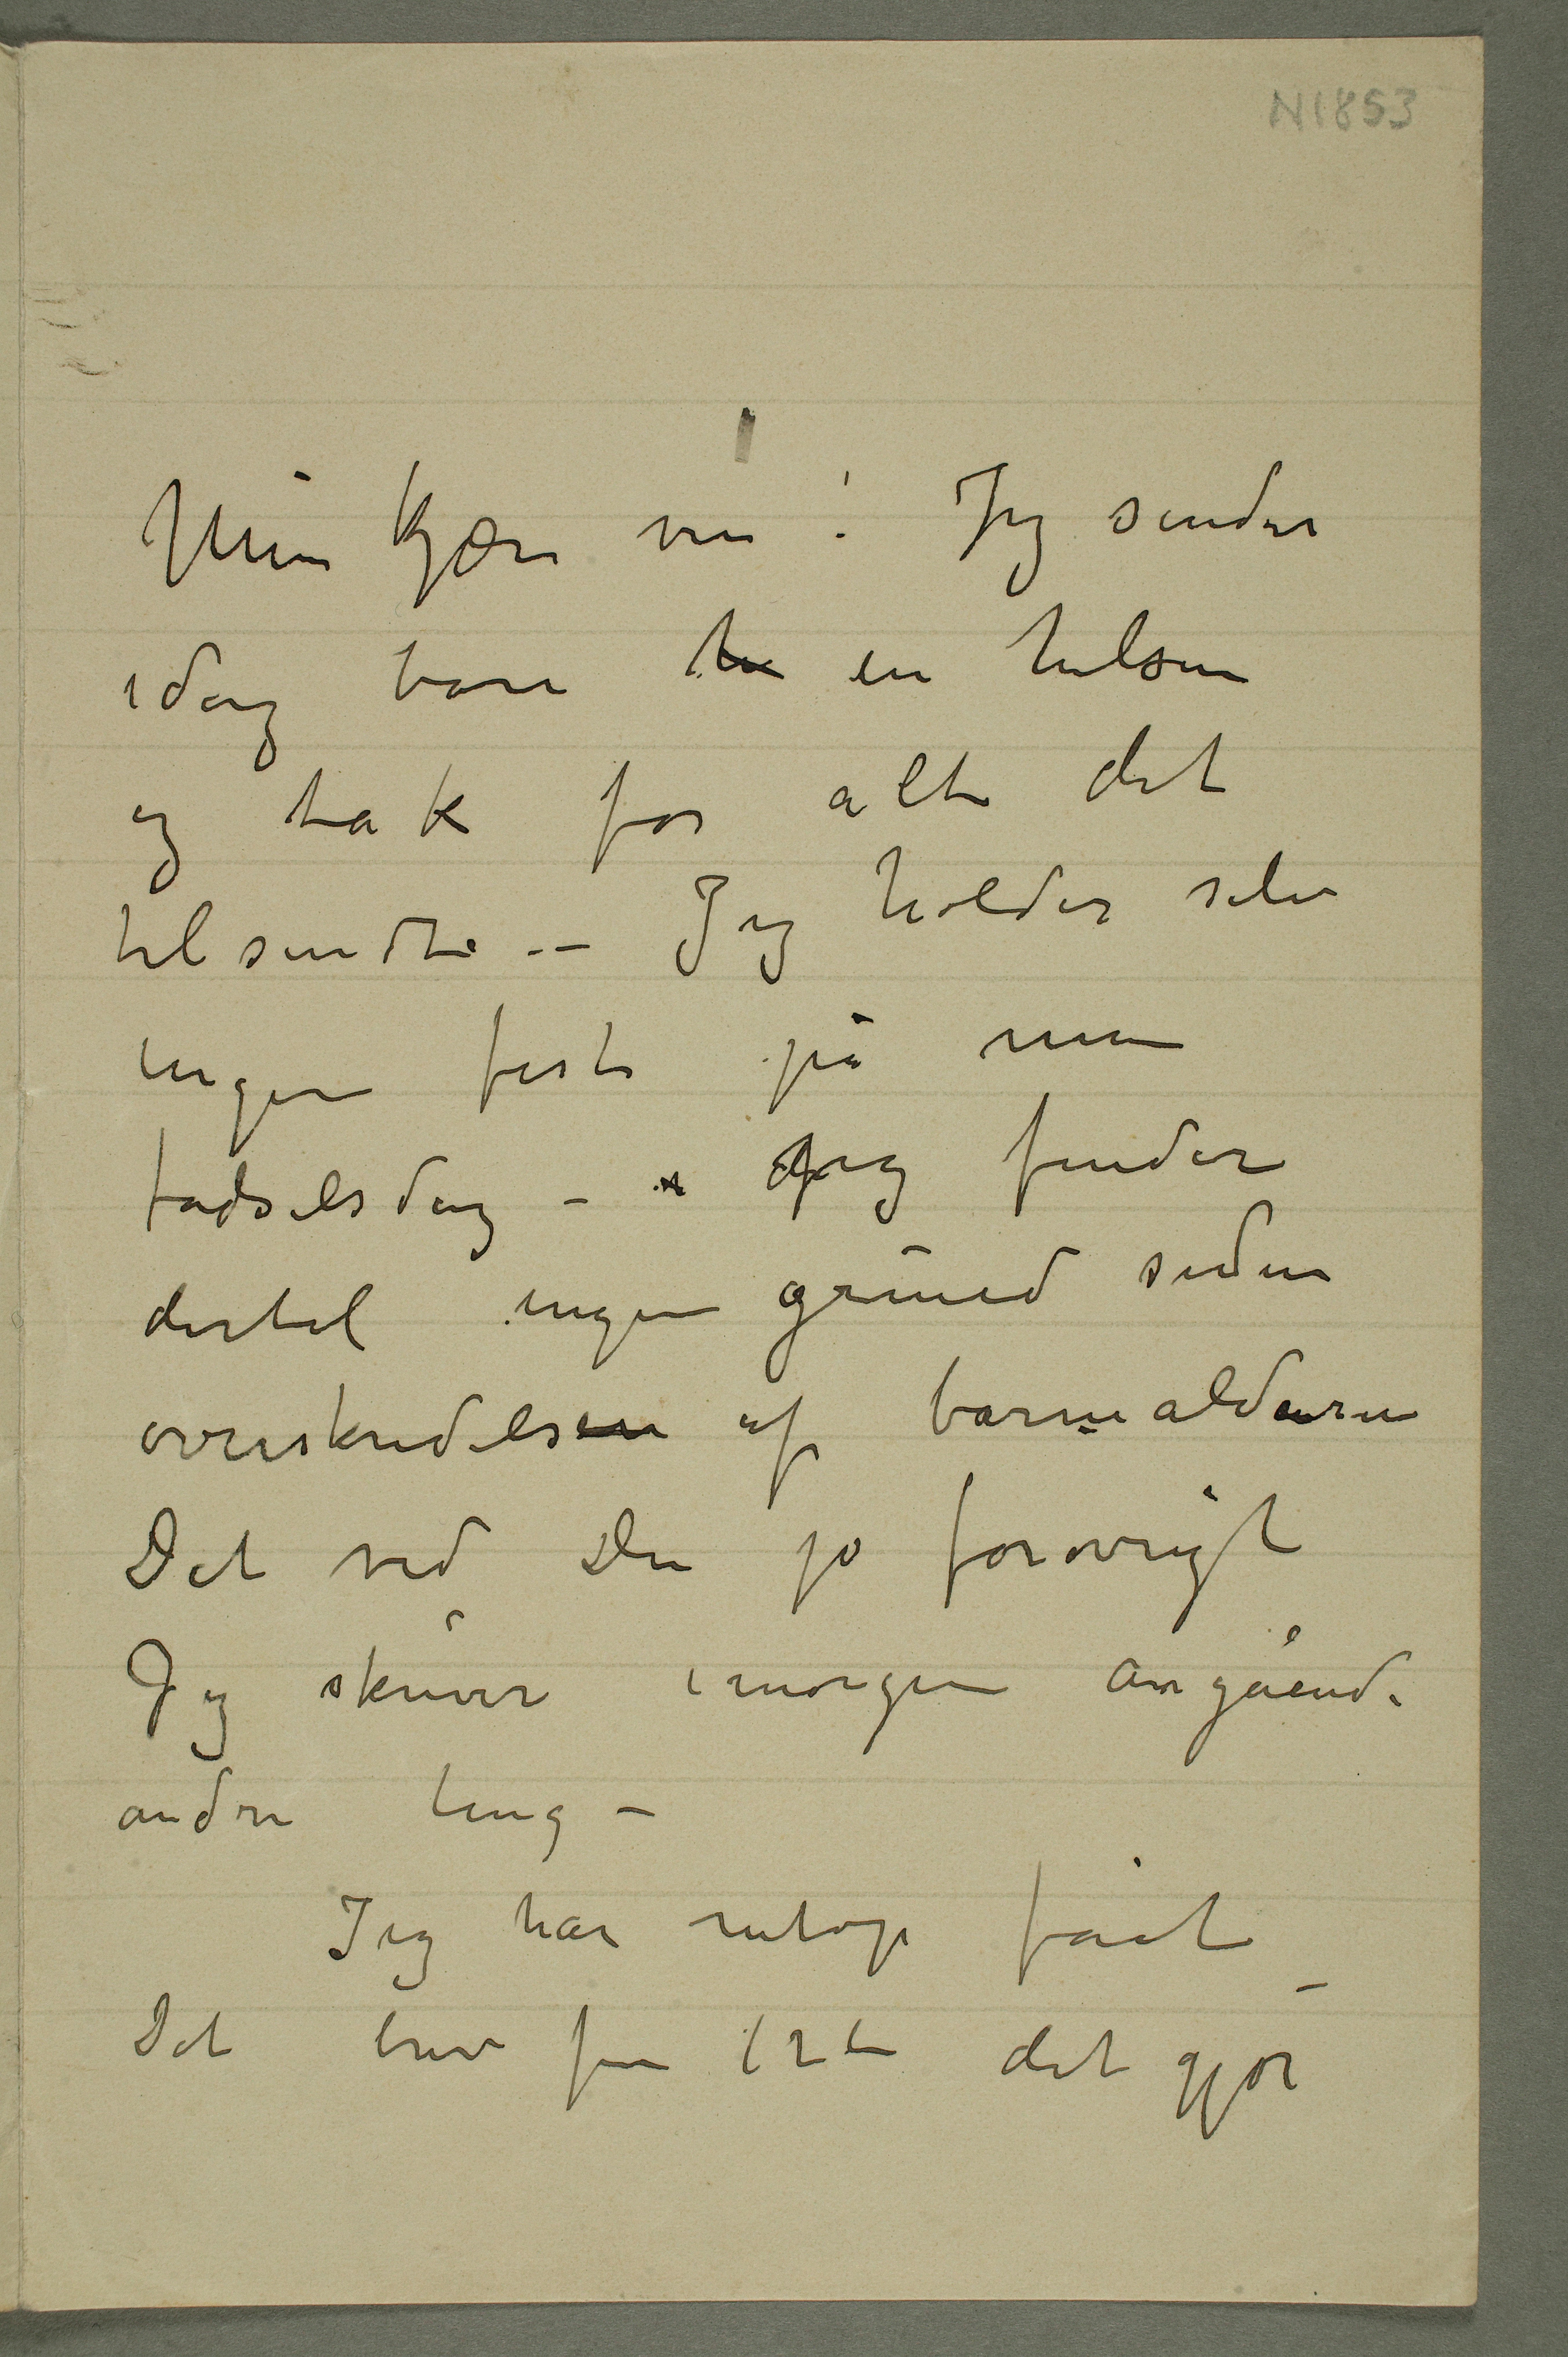 N1853
Min kjære ven! Jeg sender
idag bare en hilsen
og tak for alt det
tilsendte -- Jeg holder selv
ingen fest på min
fødselsdag - Jeg finder
dertil ingen grund siden
overskridelsen af barnealderen
Det ved Du jo forøvrigt
Jeg skriver imorgen angående
andre ting -
Jeg har netop fået
Dit brev fra 12te det gjør